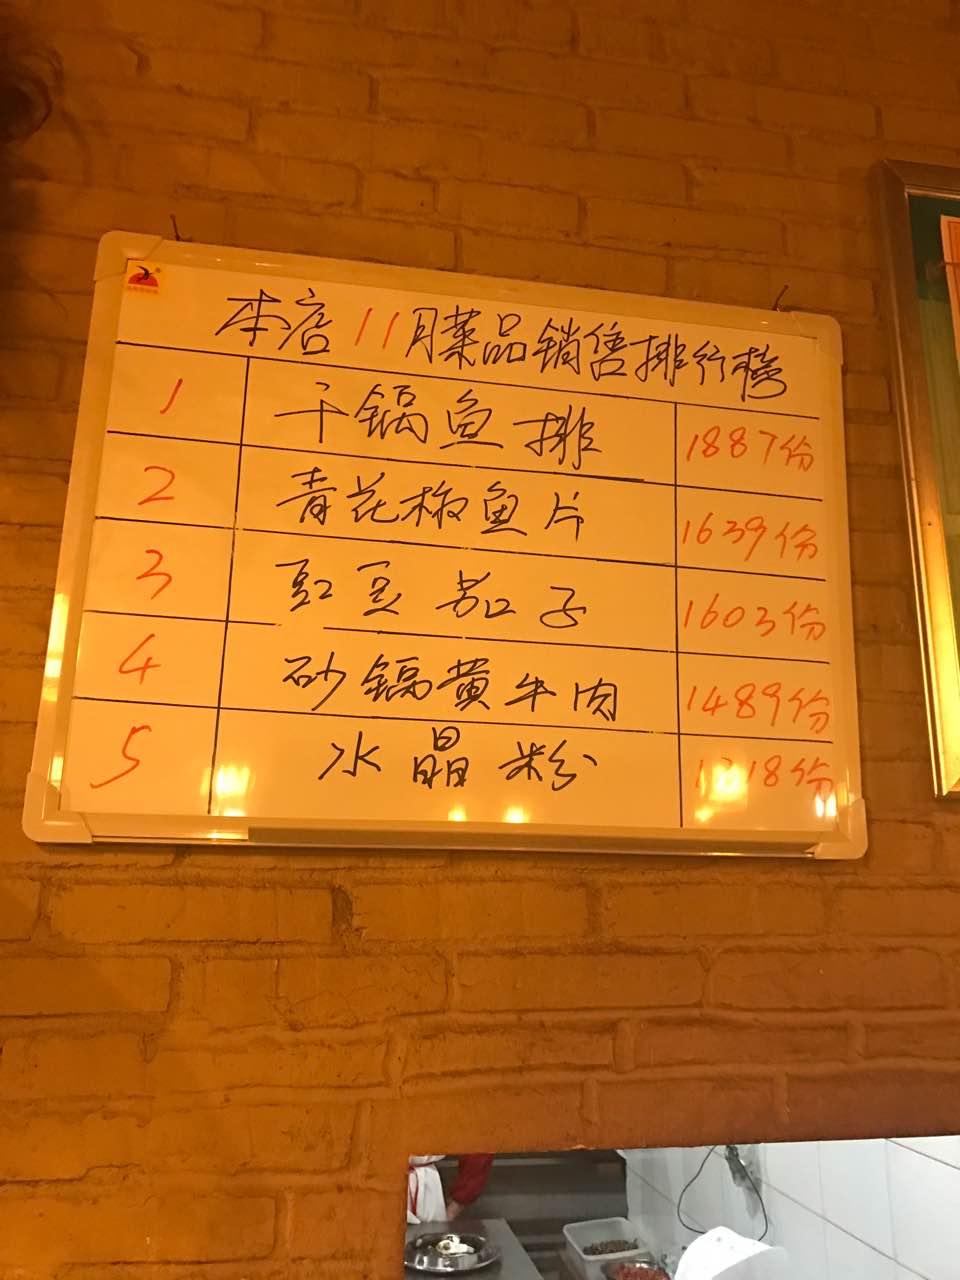 本店11月菜品销售排行榜
1 干锅鱼排 1887份
2 青花椒鱼片 1639份
3 豇豆茄子 1603份
4 砂锅黄牛肉 1489份
5 水晶粉